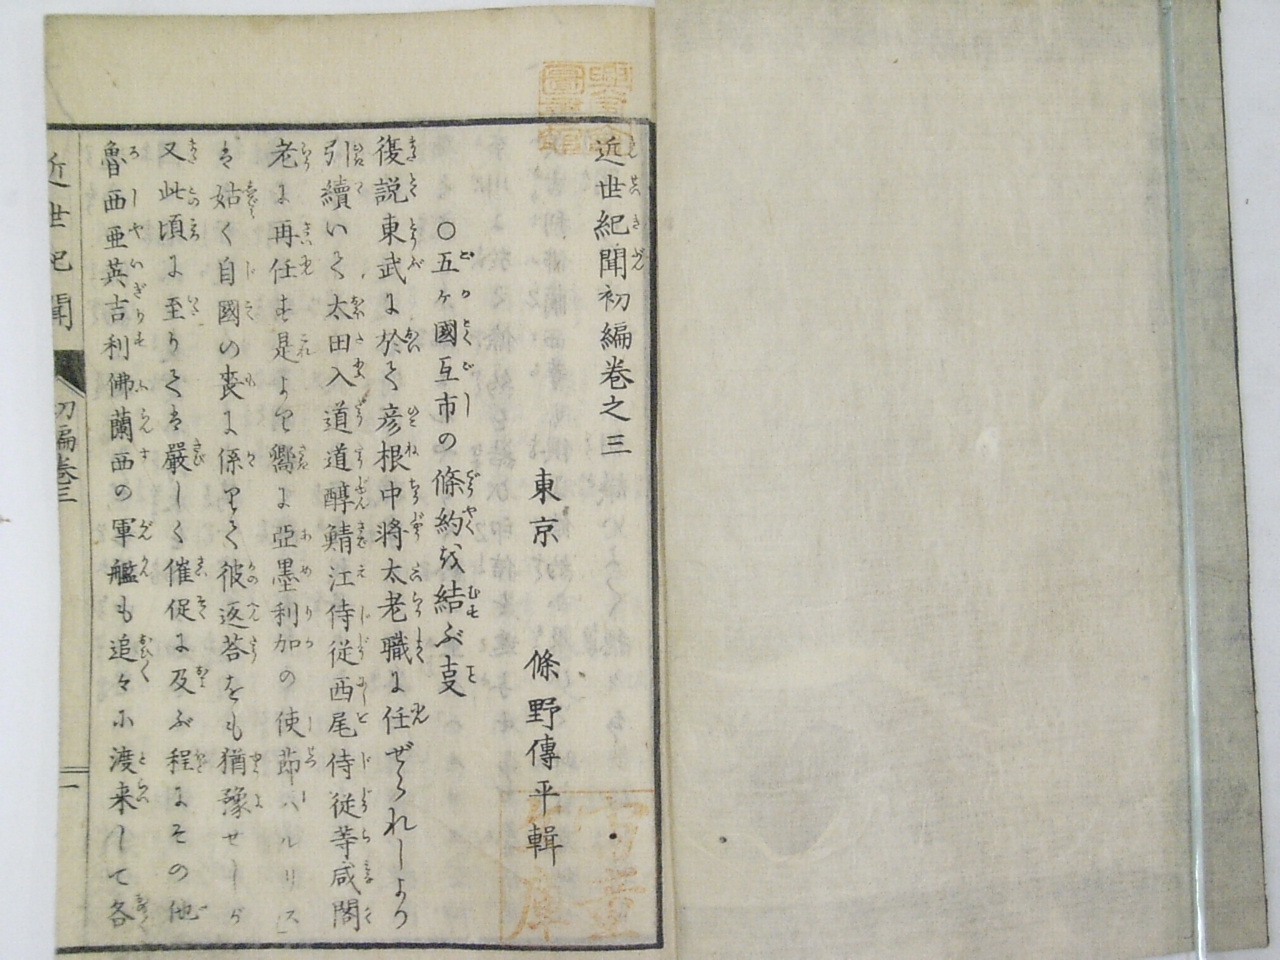 近世紀聞初編巻之三
東京 條野傳平輯
〇五ヶ國互市の條約を結ぶ支
復説東武に於て彦根中将太老職に任ぜられしより
引續いて太田入道道醇鯖江侍従西尾侍従等咸閣
老に再任す是より嚮に亞墨利加の使節ハルリス
は姑く自國の喪に係りて彼返荅をも猶豫せしが
又此頃に至りては嚴しく催促に及ぶ程にその他
魯西亜英吉利佛蘭西の軍艦も追々に渡来して各
近世紀聞 初編巻三 一